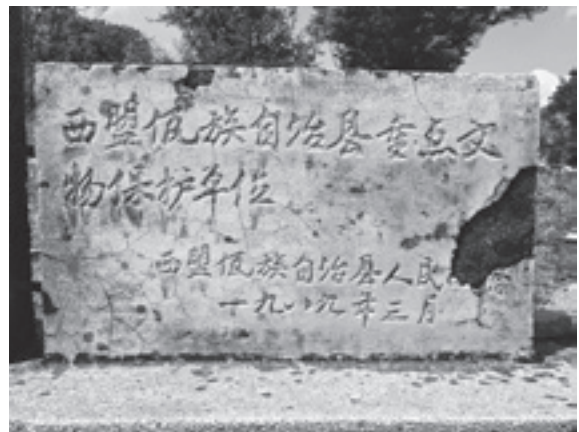 西盟佤族自治县重点文
物保护单位
西盟佤族自治县人民
一九八九年三月